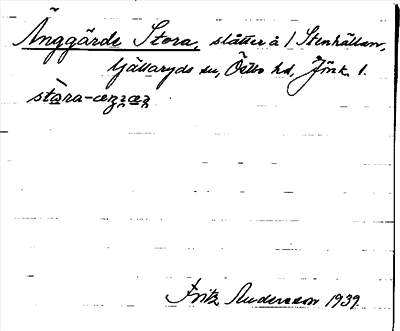 Änggärde Stora, slåtter å 1 Stenhällan,
Gällaryds sn, Östbo hd, Jönk. l.
stora-æŋʒæʒ
Fritz Andersson 1939